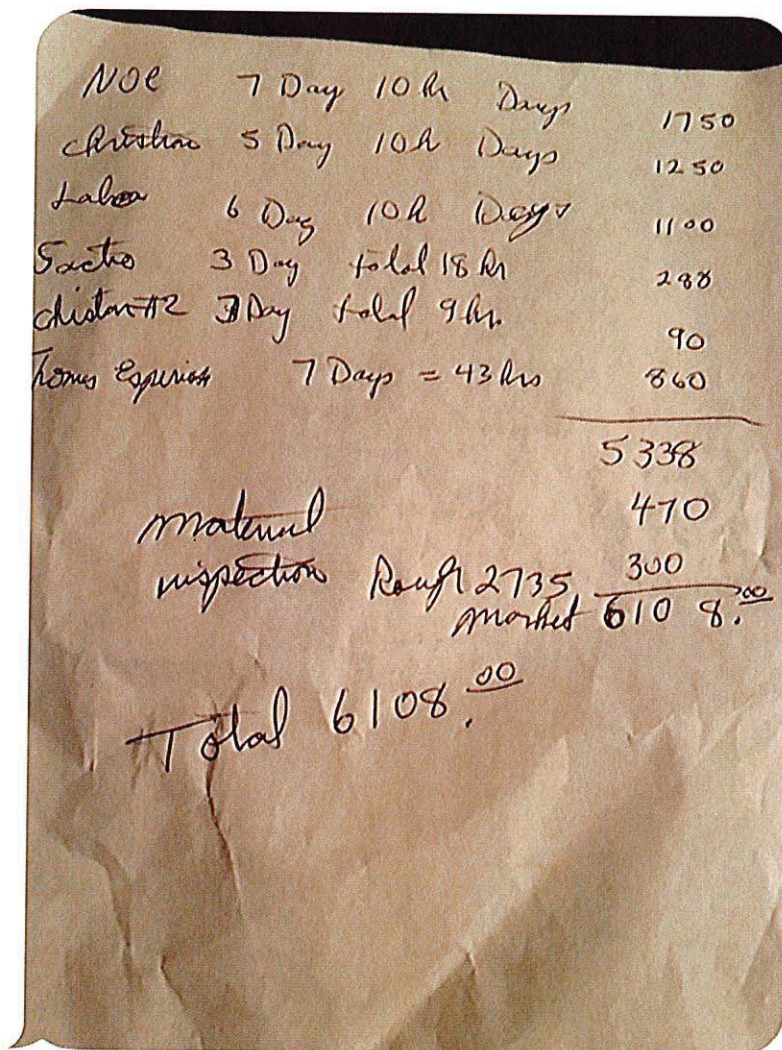 NOE 7 Day 10 hr Days 1750
Christian 5 Day 10h Days 1250
Labor 6 Day 10h Days 1100
3 Day total 18 hr 288
#2 3 Day total 9 hr. 90
Thomas 7 Days = 43 hrs 860
5338
Material 470
inspection Rough 2735 300
Market 6108.00
Total 6108.00